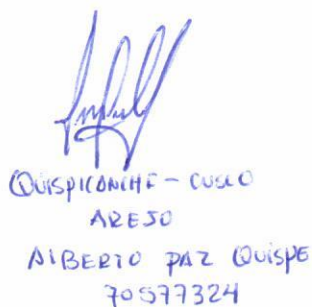 QUISPICANCHE - CUSCO
AREJO
AlBERTO PAZ QUISPE
70577324